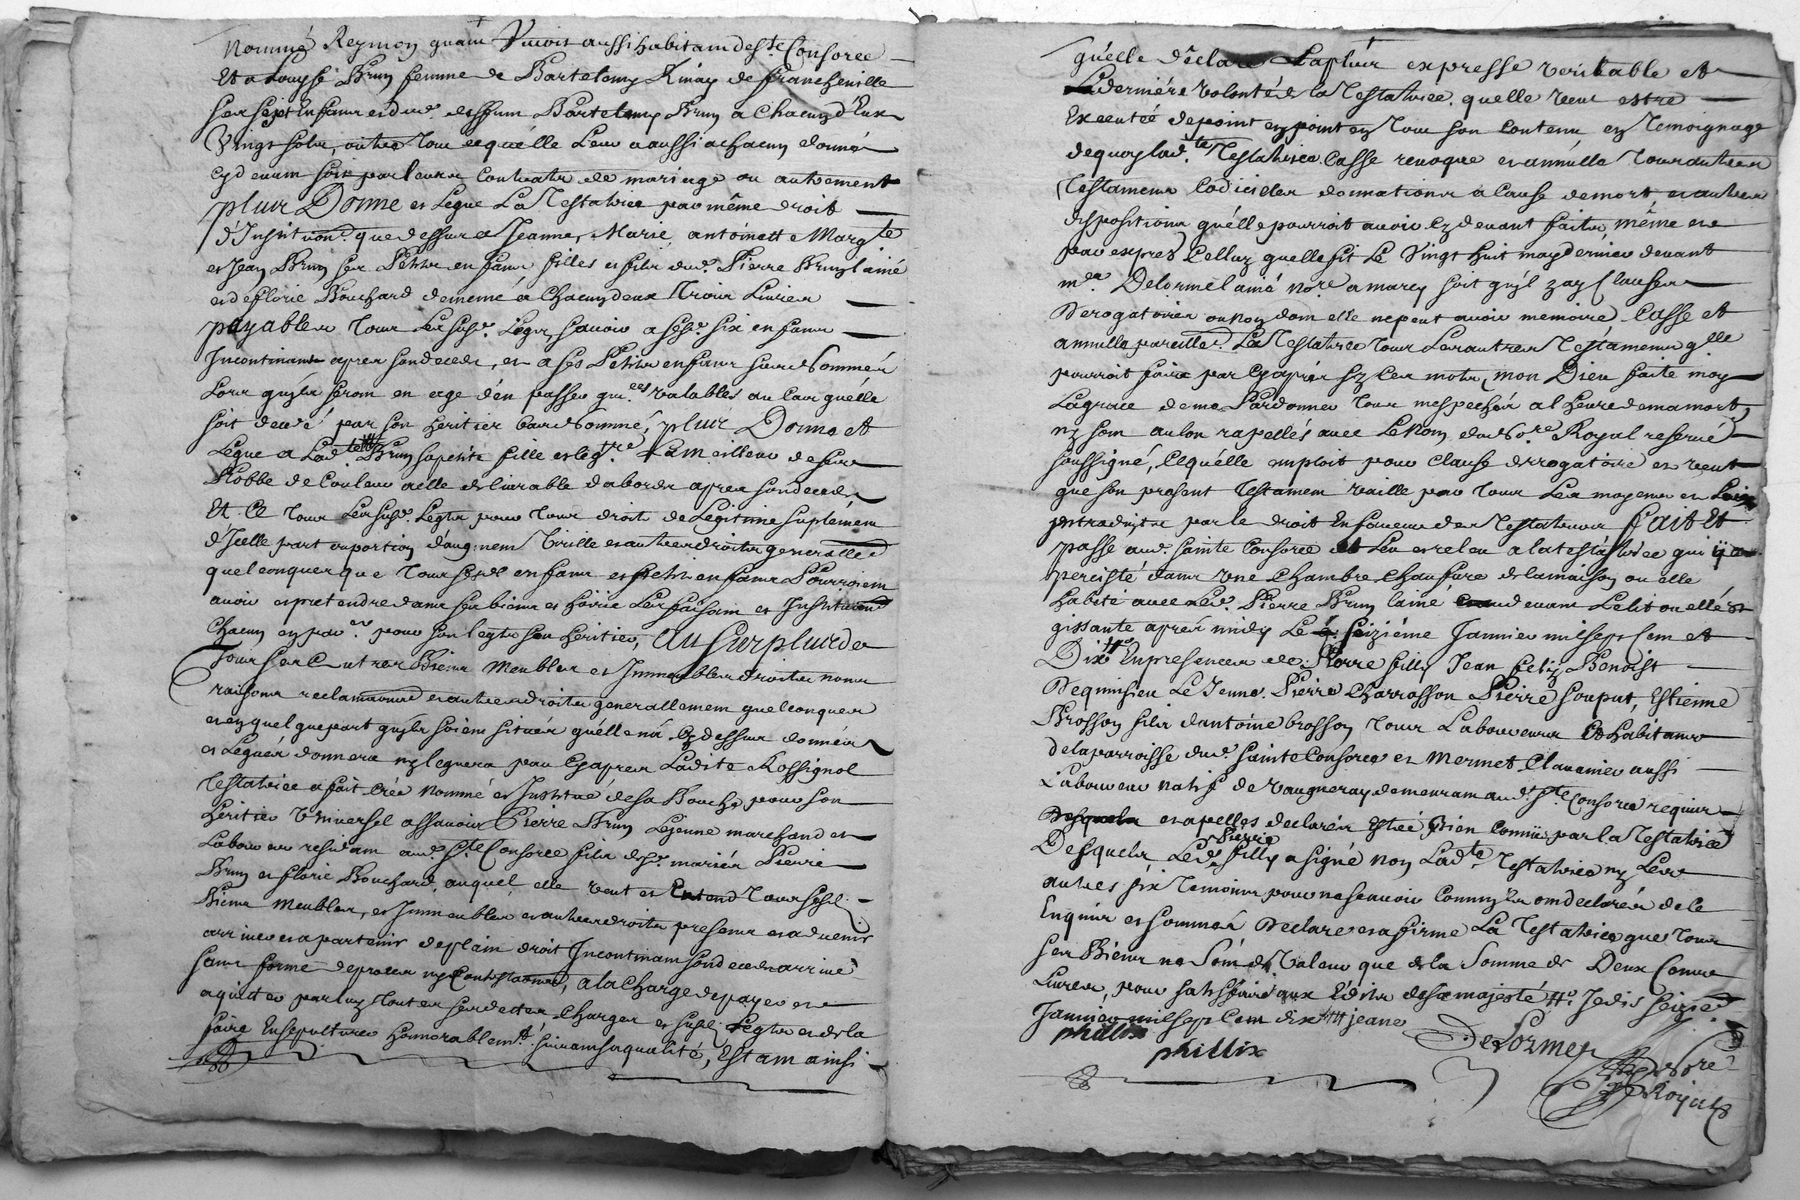 Nommé Reymon quant Vivoit aussi habitant de Ste Consorce
Et a Louyse Brun femme de Bartelemy Kinay de francheville
ses sept Enfans et dud. deffunt Bartelemy Brun a Chacun d'Eux
Vingt solz, outre Tout ce qu'elle Leur a aussi a chacun donné
cy devant soit par leurs Contratz de mariage ou autrement
plus Donne et Legue La Testatrice par même droit
d'Institution que dessus a Jeanne, Marie antoinette Margte
et Jean Brun ses Petitz enfans filles et filz dud. Pierre Brun laîné
et de florie Bouchard de meme a Chacun deux Trois Livres
payables Tous Les susd. Legz, savoir a sesd. six enfans
Incontinant apres son deceds, et a ses Petitz enfans surnommés
Lors qu'ilz seront en age d'en passer quces valables au Cas qu'elle
soit par son heritier bas nommé, plus Donne et
Legue a Ladte Brun sa petite fille et legre La meilleur de ses
Robbe de Couleur a elle delivrable d'abord apres son deceds
Et Ce Tous Les susd. Legtz pour Tous droit de Legitime suplément
d'Icelle part ou portion d'augment Virille et autres droitz generallement
quelconques que Tous sesd. enfans et petitz enfans Pourroient
avoir et pretendre dans ses biens et hoirie Les faisant et Instituant
Chacun en par. er pour son legtz son heritier, Au surplus de
Tous ses Autres Biens Meubles et Immeubles droitz noms
raisons reclamations et autres droitz generallement quelconques
et en quelque part qu'ilz soient situés qu'elle n'a Cy dessus donnés
et Legués donnera ny leguera par Cy apres Ladite Rossignol
Testatrice a fait Créé Nommé et Institué de sa Bouche pour son
Heritier Universel assavoir Pierre Brun Lejeune marchand et
Laboureur residant aud. Ste Consorce filz desd. mariés Pierre
Brun et florie Bouchard, auquel elle veut et Entend Tous sesd.
Biens Meubles, et Immeubles et autres droitz presens et advenir
arriver et apartenir de plain droit Incontinant son deceds arrivé
sans forme de proces ny Contestations, a la Charge de payer et
aquitter par luy Toutes ses dettes Charges et susd. Legtz et de la
faire Ensepulturer honnorablemt suivant sa qualité, Estant ainsi
qu'elle déclare La plus expresse veritable et
La derniére volonté de la Testatrice qu'elle veut estre
Executée de point en point en Tout son Contenu en Temoignage
de quoy lad.te Testatrice Casse revoque et annulle Tous autres
Testamens Codicilles donnations a Cause de mort, et autres
dispositions qu'elle pourroit avoir Cy devant faites, même et
par exprés Celluy qu'elle fit Le Vingt huit may dernier devant
me. Delorme laîné nore a marcy soit qu'il y ay Clauses
Derogatoires ou non dont elle ne peut avoir memoire Casse et
annulle pareillet. La Testatrice Tous Les autres Testámens qelle
pourroit faire par Cy aprés sy Les motz, mon Dieu faite moy
La grace de me Pardonner Tous mes pechés a l'heure de ma mort,
ny sont au lon rapellés avec Le Nom dud. Nore Royal reservé
soussigné, Cequ'elle emploit pour Clause derrogatoire et veut
que son present Testament vaille par Tous Les moyens et Loix
introduitz par le droit En faveur des Testateurs fait Et
passé aud. sainte Consorce et Leu et releu a la testatrice qui y a
percisté dans une Chambre Chaufure de la maison ou elle
habite avec Led. Pierre Brun laîné devant Le lit ou elle est
gissante aprés midy Le seiziéme Janvier mil sept Cent et
Dix sept En presences de Pierre filly Jean feliz Benoist
Dequinsieu Le Jeune Pierre Charrasson Pierre Souput, Estienne
Brosson filz d'antoine brosson Tous Laboureurs Et habitans
de la parroisse dud. sainte Consorce et Mermet Clavanier aussi
Laboureur natif de Vaugneray demeurant aud. Ste Consorce requis
et apelles declarés Estre Bien Connus par la Testatrice
Desquelz Led. Pierre filly a signé non Ladte Testatrice ny Les
autres six Temoins pour ne scavoir Comm'ilz ont declarés de Ce
Enquis et sommés Declare et afirme La Testatrice que Tous
ses Biens ne Sont de Valeur que de la Somme de Deux Cents
Livres, pour satisfaire aux Editz de sa majesté Jedis seizie
Janvier mil sept Cent dix sept jeane
phillix
phillix
DeLorme
Nore
Royal